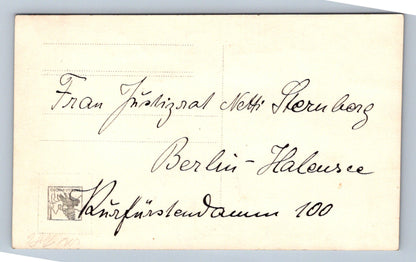 Frau Justizrat Netti Sternberg
Berlin-Halensee
Kurfürstendamm 100